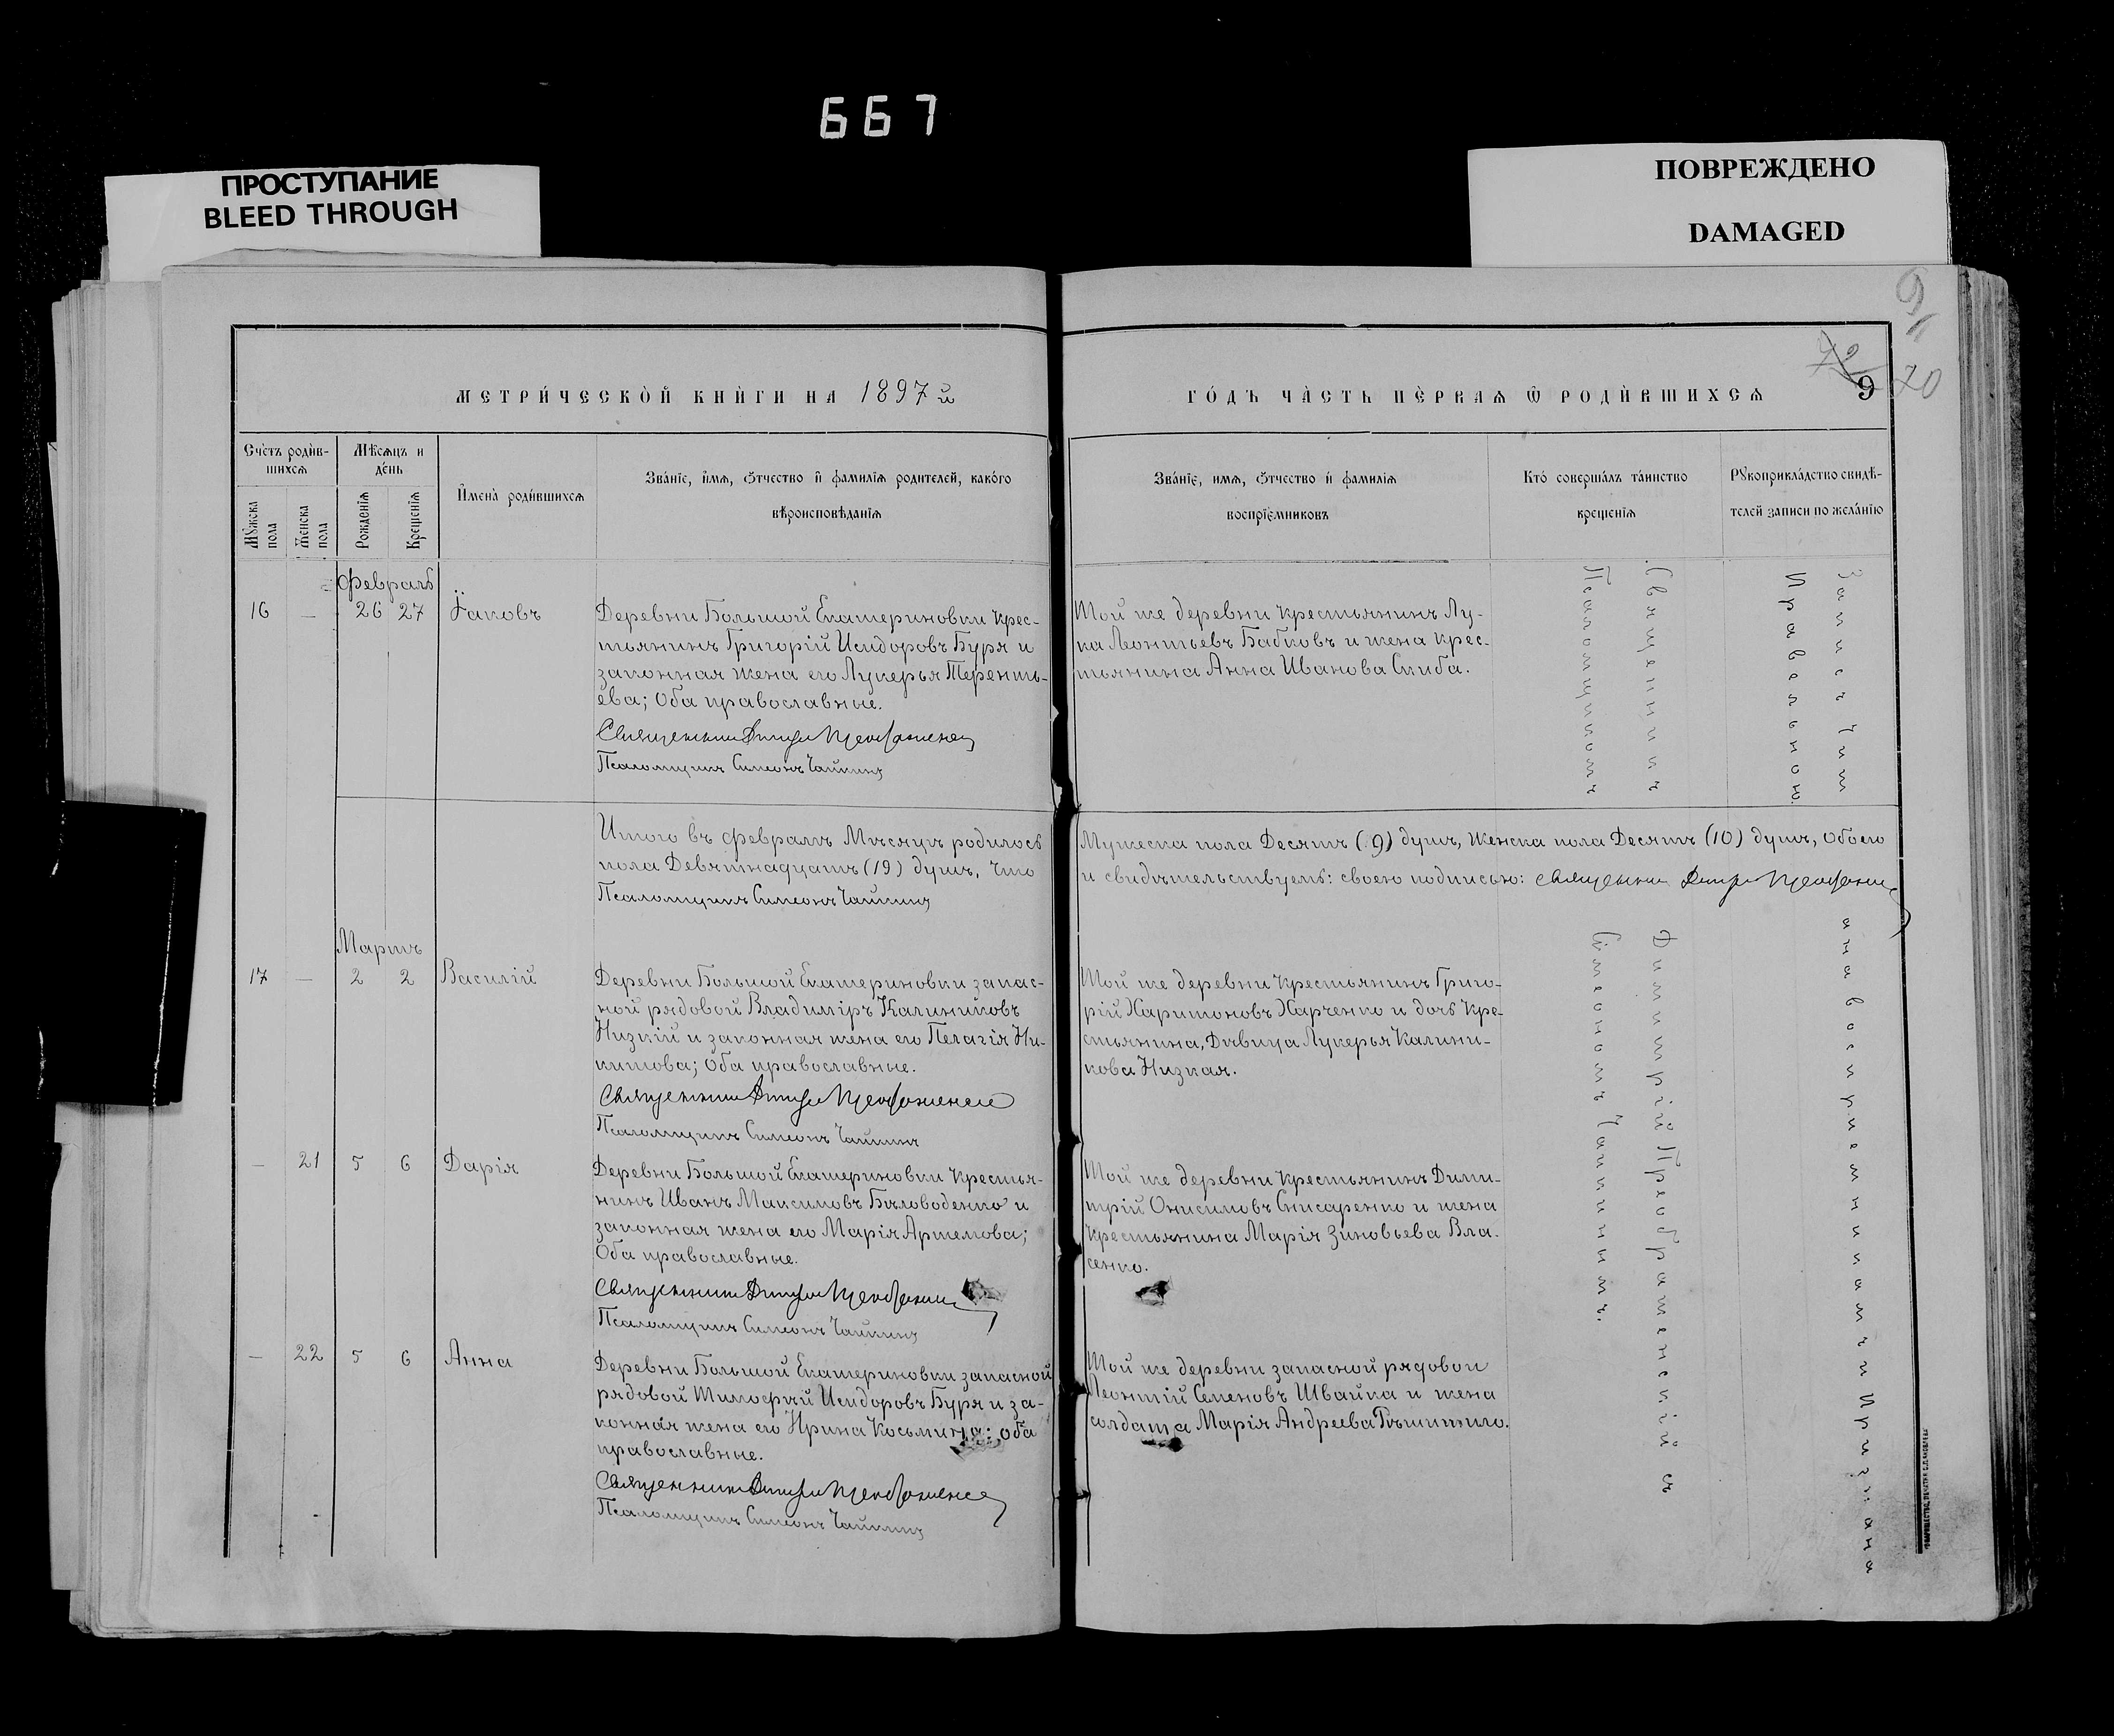 667
ПРОСТУПАНИЕ
BLEED THROUGH
ПОВРЕЖДЕНО
DAMAGED
91
72
9
70
МЕТРИ́ЧЕСКОЙ КНИ́ГИ НА 1897 й
ГО́ДЪ ЧА́СТЬ ПЕ́РВАѦ Ѿ РОДИ́ВШИХСѦ
Сче́тъ роди́в-
шихсѧ
Мѣсѧцъ и
де́нь
Мꙋжска
пола
Женска
пола
Рожденїѧ
Крещенїѧ
Имена̀ роди́вшихсѧ
Зва́нїе, и́мѧ, ѻтчество и фамилїѧ родителей, како́го
вѣроисповѣданїѧ
Зва́нїе, имѧ, ѻтчество и фамилїѧ
воспрїемниковъ
Кто́ соверша́лъ та́инство
крещенїѧ
Рꙋкоприкла́дство свидѣ-
телей записи по жела́нїю
Февраль
16 — 26 27 Іаковъ
Деревни Большой Екатериновки крес-
тьянинъ Григорій Исидоровъ Буря и
законная жена его Лукерья Теренть-
ева; Оба православные.
Священникъ Дмитрій Преображенскій
Псаломщикъ Симеонъ Чайкинъ
Той же деревни крестьянинъ Лу-
ка Леонтьевъ Бабковъ и жена крес-
тьянина Анна Иванова Скиба.
Итого въ Февралѣ Мѣсяцѣ родилось
пола Девятнадцать (19) душъ, что
Псаломщикъ Симеонъ Чайкинъ
Мужеска пола Десять (9) душъ, Женска пола Десять (10) душъ, Обоего
и свидѣтельствуемъ: своею подписью: Священникъ Дмитрій Преображенскій
Мартъ
17 — 2 2 Василій
Деревни Большой Екатериновки запас-
ной рядовой Владиміръ Калиниковъ
Низкій и законная жена его Пелагія Ни-
китова; Оба православные.
Священникъ Дмитрій Преображенскій
Псаломщикъ Симеонъ Чайкинъ
Той же деревни крестьянинъ Григо-
рій Харитоновъ Харченко и дочь кре-
стьянина, Дѣвица Лукерья Калини-
кова Низкая.
— 21 5 6 Дарія
Деревни Большой Екатериновки крестья-
нинъ Иванъ Максимовъ Бѣловоденко и
законная жена его Марія Артемова;
Оба православные.
Священникъ Дмитрій Преображенскій
Псаломщикъ Симеонъ Чайкинъ
Той же деревни крестьянинъ Дими-
трій Онисимовъ Снисаренко и жена
крестьянина Марія Зиновьева Вла-
сенко.
— 22 5 6 Анна
Деревни Большой Екатериновки запасной
рядовой Тимофѣй Исидоровъ Буря и за-
конная жена его Ирина Косьмина: оба
православные.
Священникъ Дмитрій Преображенскій
Псаломщикъ Симеонъ Чайкинъ
Той же деревни запасной рядовой
Леонтій Семеновъ Швайка и жена
солдата Марія Андреева
Священникъ Димитрій Преображенскій съ
Псаломщикомъ Симеономъ Чайкинымъ.